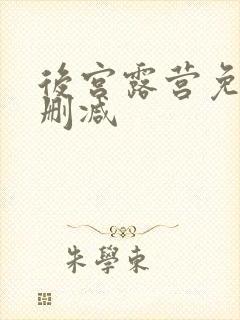 後宫露营免
删减
朱學東